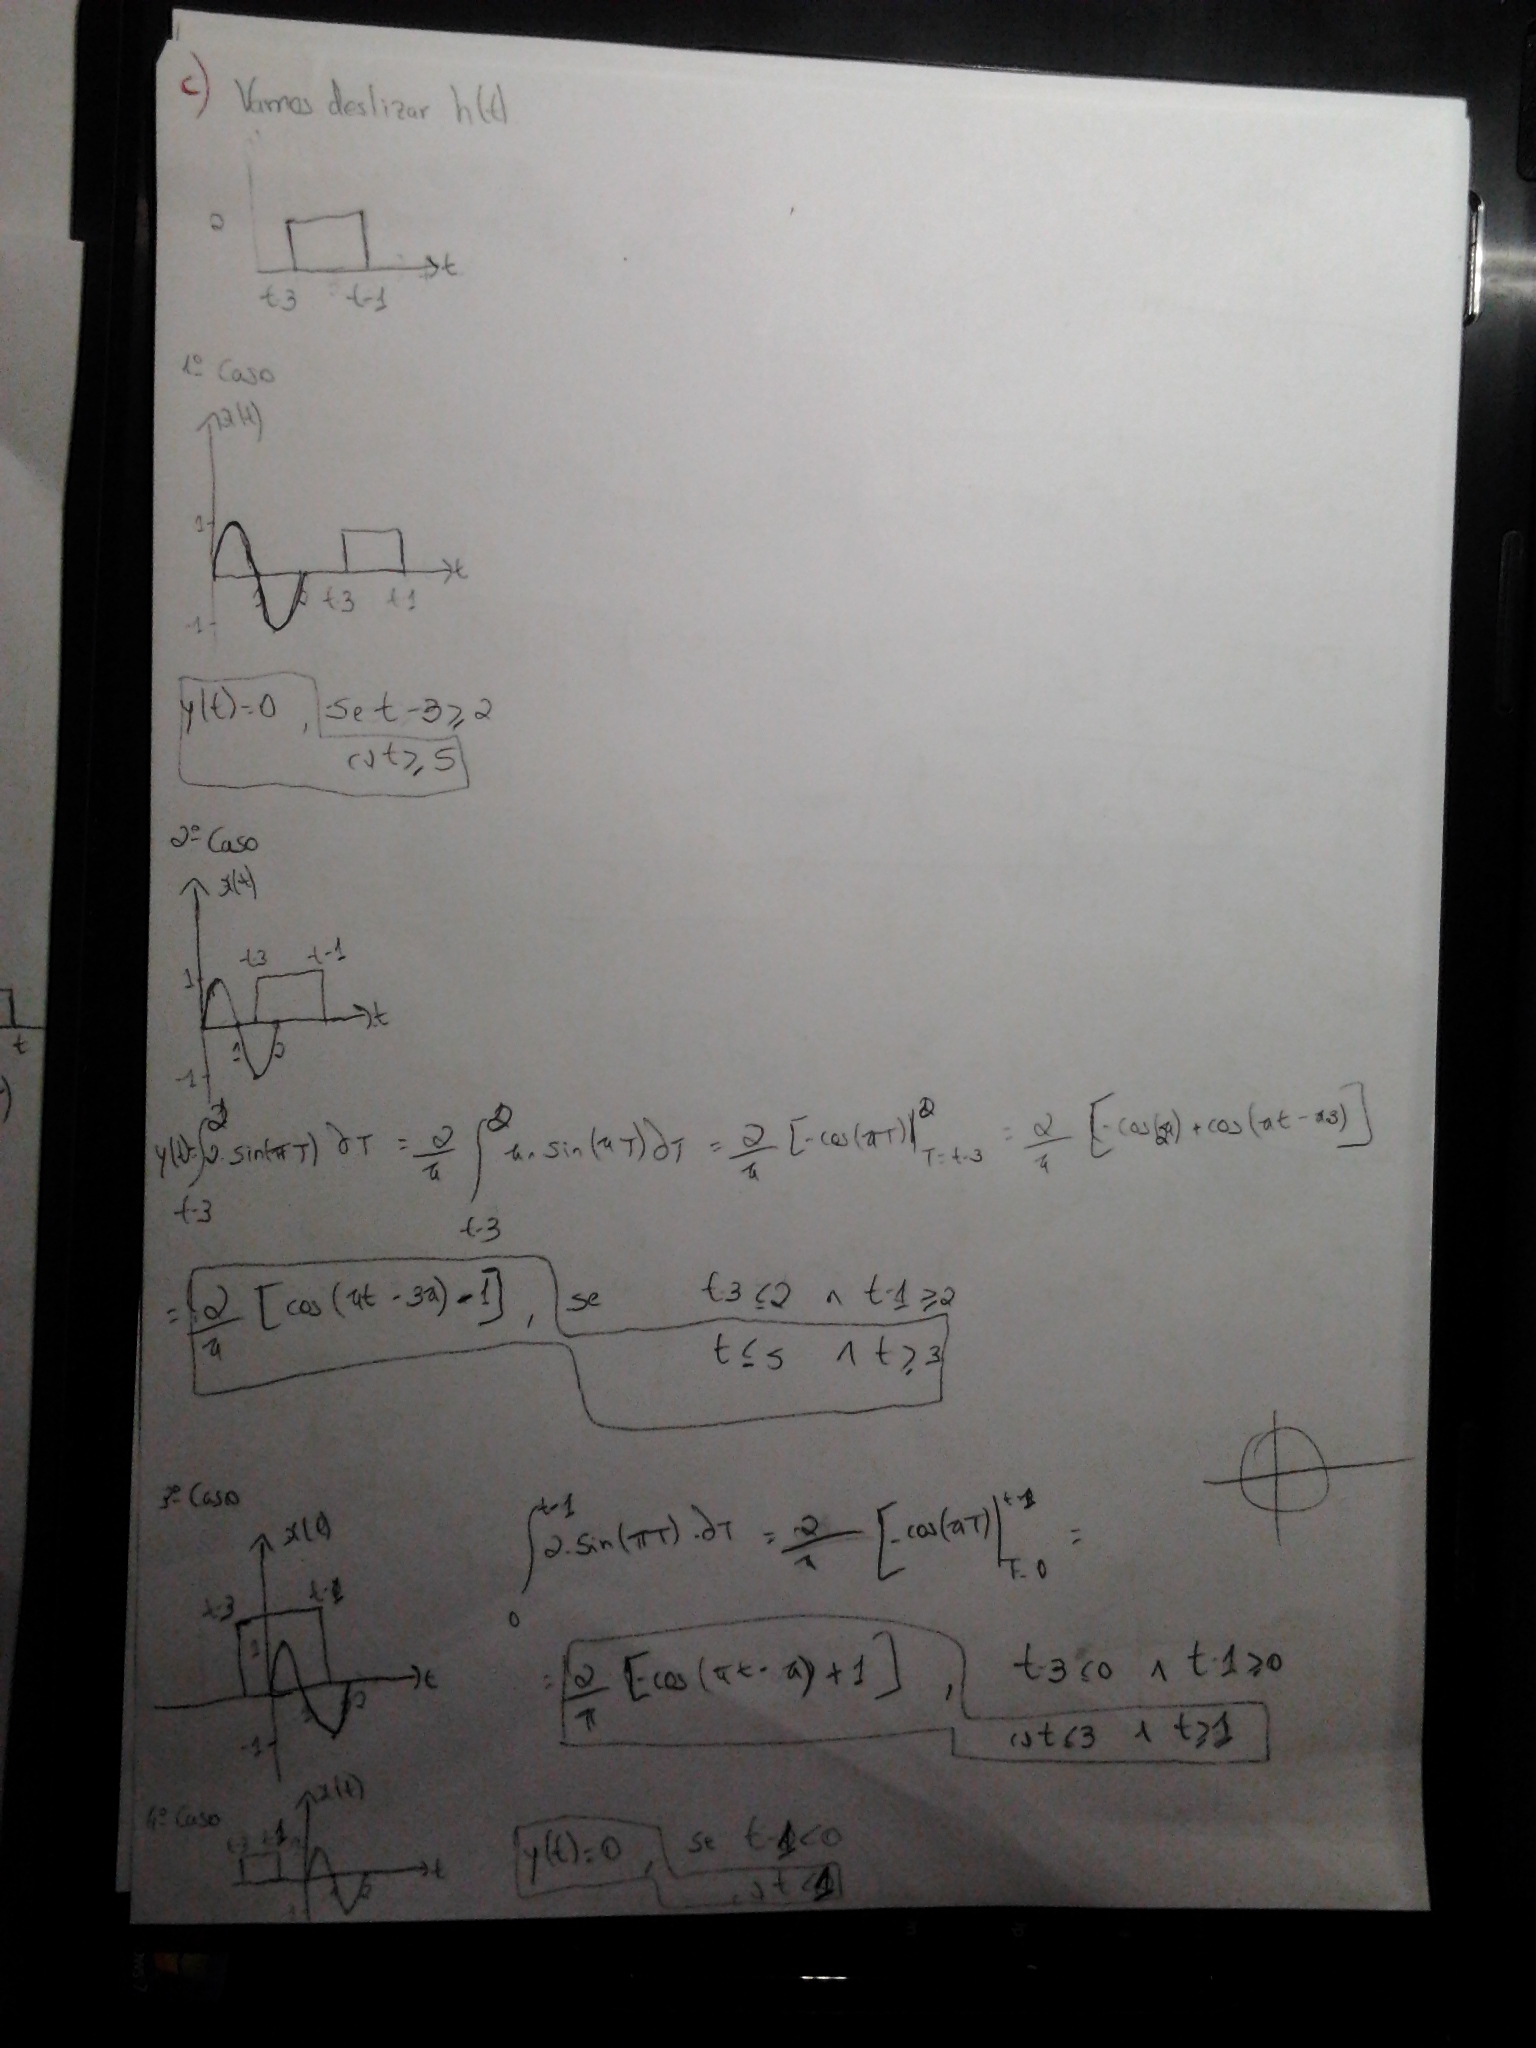 c) Vamos deslizar h(t)
2
t
t-3 t-1
1º Caso
x(t)
1
t
1 2 t-3 t-1
-1
y(t)=0, se t-3≥2
⇔ t≥5
2º Caso
x(t)
t-3 t-1
1
t
1 2
-1
y(t)=∫_{t-3}^{2} 2.sin(πT) ∂T = 2/π ∫_{t-3}^{2} π.sin(πT)∂T = 2/π [-cos(πT)]|_{T=t-3}^{2} = 2/π [-cos(2π)+cos(πt-π3)]
= 2/π [cos(πt-3π)-1], se t-3≤2 ∧ t-1≥2
t≤5 ∧ t≥3
3º Caso
x(t)
t-3 t-1
1
t
1 2
-1
∫_{0}^{t-1} 2.sin(πT).∂T = 2/π [-cos(πT)]|_{T=0}^{t-1} =
= 2/π [-cos(πt-π)+1], t-3≤0 ∧ t-1≥0
⇔ t≤3 ∧ t≥1
4º Caso
x(t)
t-3 t-1
t
1 2
y(t)=0, se t-1<0
⇔ t<1
t